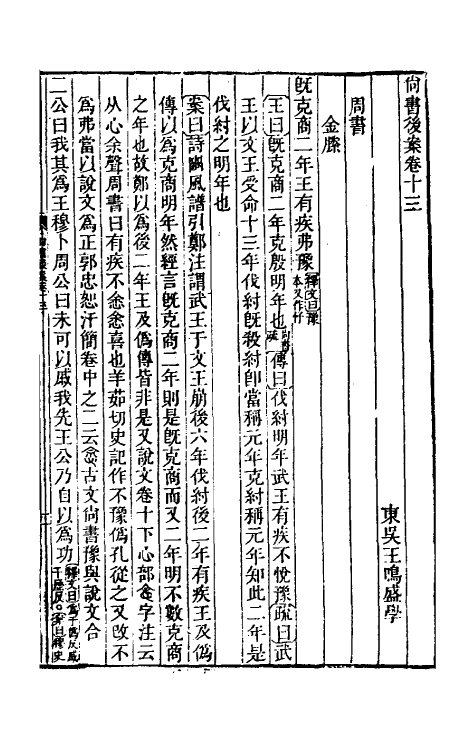 尚書後案卷十三
東吳王鳴盛學
周書
金縢
旣克商二年王有疾弗豫釋文曰豫本又作忬
王曰旣克商二年克殷明年也尚書疏傳曰伐紂明年武王有疾不悅豫疏曰武
王以文王受命十三年伐紂旣殺紂卽當稱元年克紂稱元年知此二年是
伐紂之明年也
案曰詩豳風譜引鄭注謂武王于文王崩後六年伐紂後二年有疾王及僞
傳以爲克商明年然經言旣克商二年則是旣克商而又二年明不數克商
之年也故鄭以爲後二年王及僞傳皆非是又說文卷十下心部悆字注云
从心余聲周書曰有疾不悆悆喜也羊茹切史記作不豫僞孔從之又改不
爲弗當以說文爲正郭忠恕汗簡卷中之二云悆古文尚書豫與說文合
二公曰我其爲王穆卜周公曰未可以戚我先王公乃自以爲功釋文曰爲于僞反戚千歷反